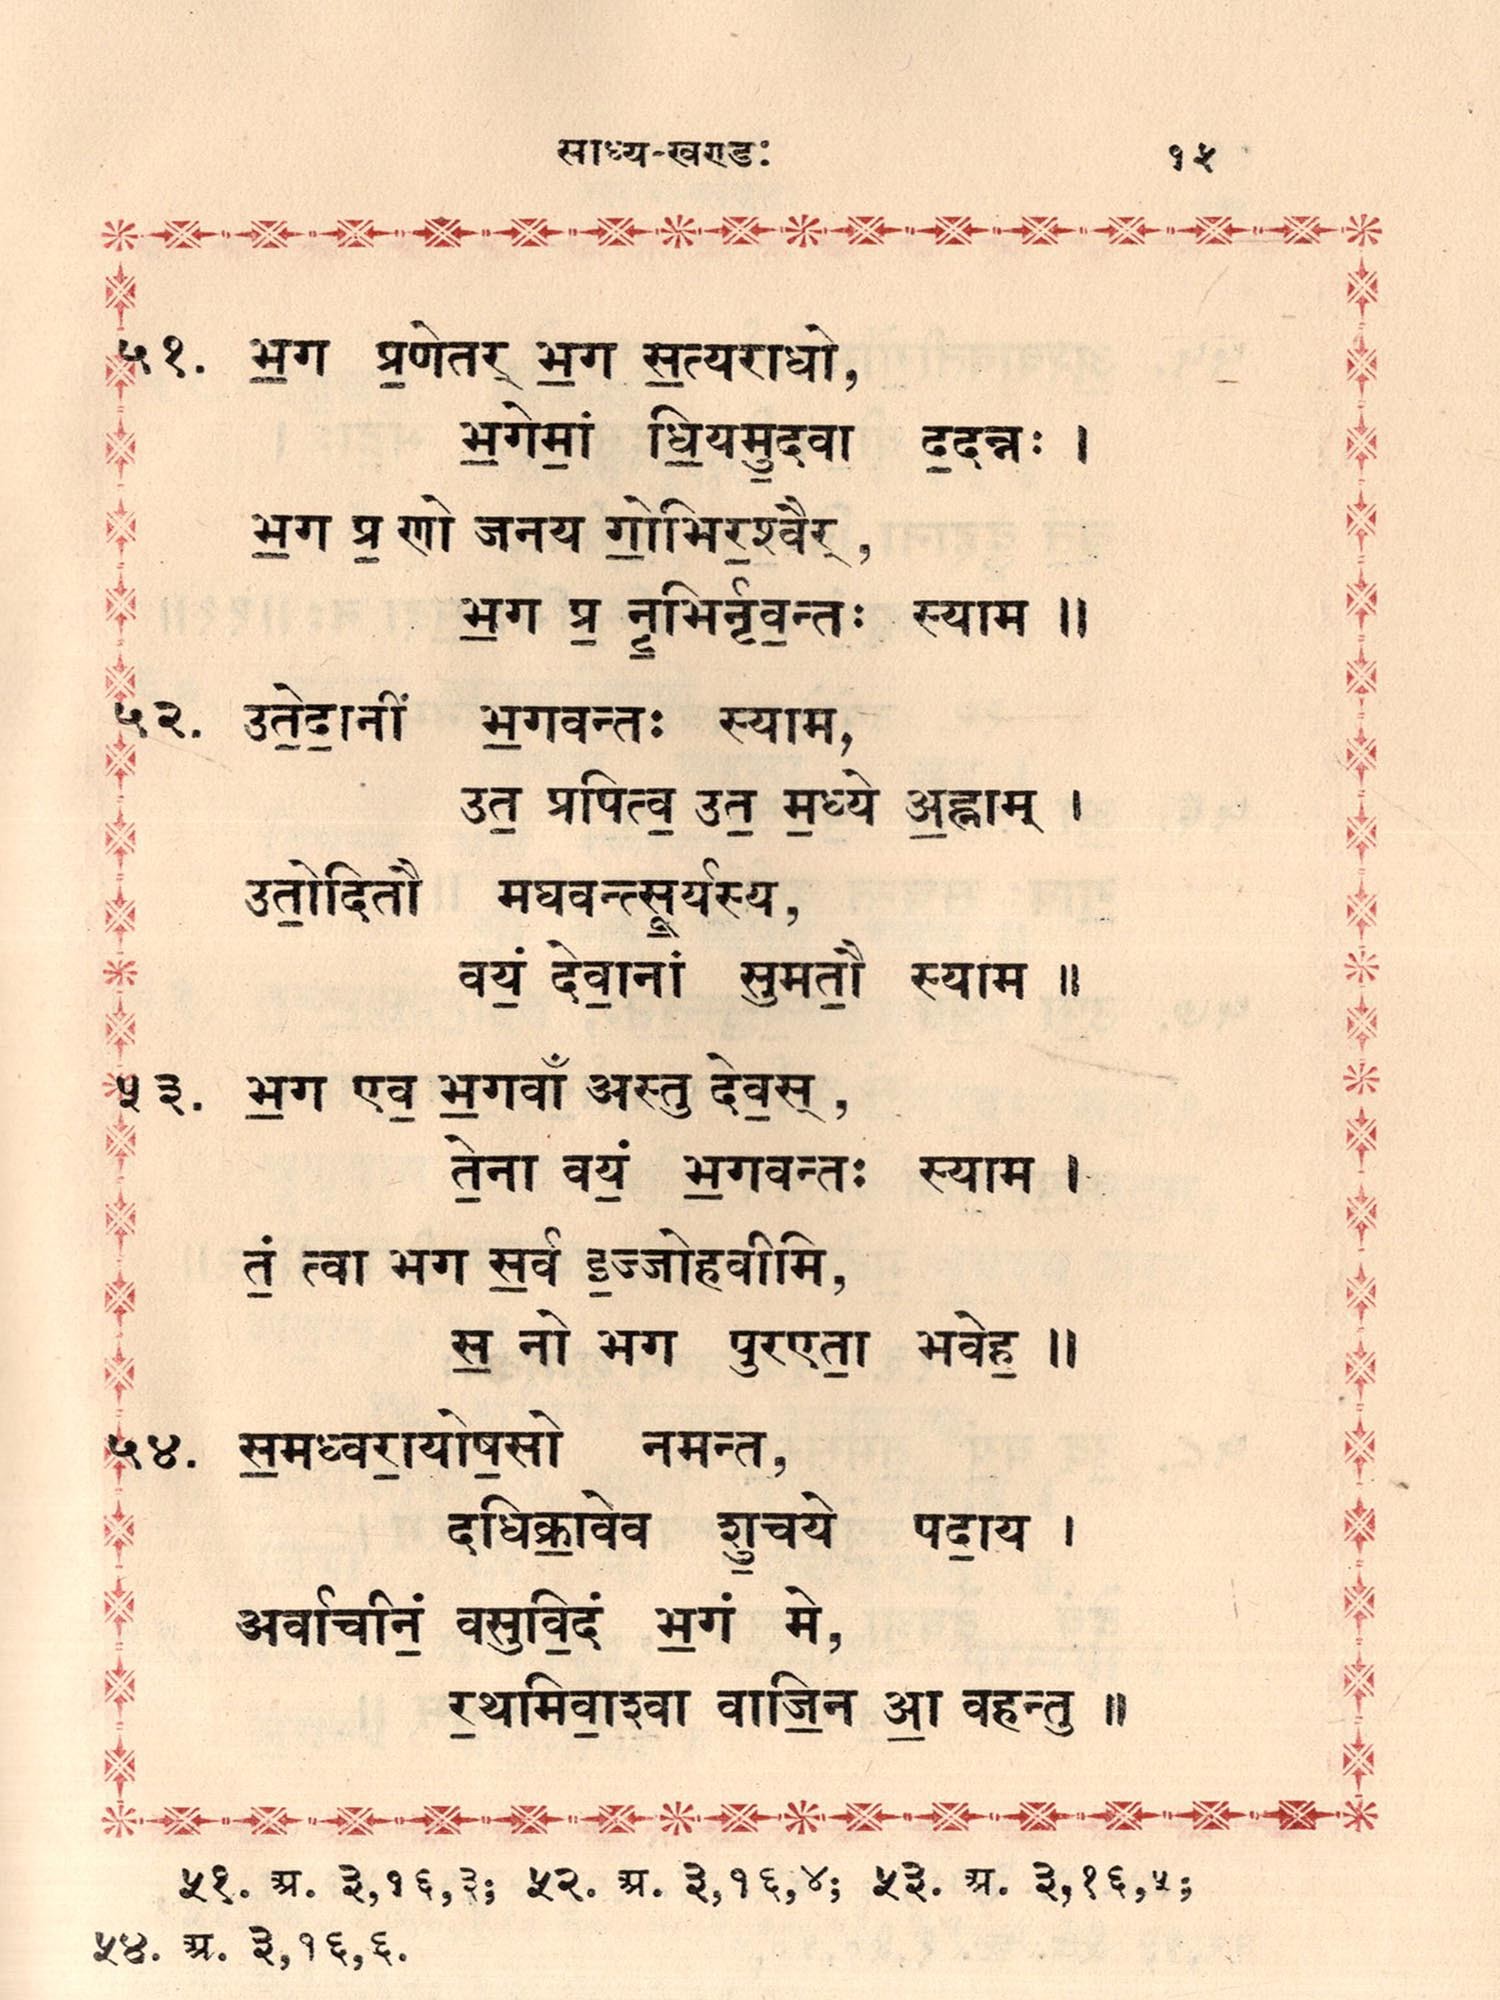 साध्य-खण्डः १५
५१. भ॒ग प्र॒णेतर् भ॒ग स॒त्यराधो,
भ॒गेमां॒ धि॒यमु॒दवा द॒दन्नः ।
भ॒ग प्र॒ णो जनय गो॒भिर॒श्वैर्,
भ॒ग प्र॒ नृ॒भिर्नृव॒न्तः स्याम ॥
५२. उते॒दा॒नीं भ॒गवन्तः स्याम,
उत॒ प्रपित्व॒ उत॒ म॒ध्ये अ॒ह्नाम् ।
उतो॒दितौ मघवन्त्सू॒र्यस्य,
वयं॒ देवा॒नां सुमतौ॒ स्याम ॥
५३. भ॒ग एव॒ भ॒गवाँ अस्तु देव॒स्,
ते॒ना वयं॒ भ॒गवन्तः स्याम ।
तं॒ त्वा भग स॒र्व इ॒ज्जोहवीमि,
स॒ नो भग पुरएता॒ भवेह॒ ॥
५४. स॒मध्वरा॒योष॒सो नमन्त,
दधिक्रा॒वेव शु॒चये पदा॒य ।
अर्वाचीनं॒ वसुवि॒दं भ॒गं मे,
र॒थमिवा॒श्वा वाजि॒न आ॒ वहन्तु ॥
५१. अ. ३,१६,३; ५२. अ. ३,१६,४; ५३. अ. ३,१६,५;
५४. अ. ३,१६,६.